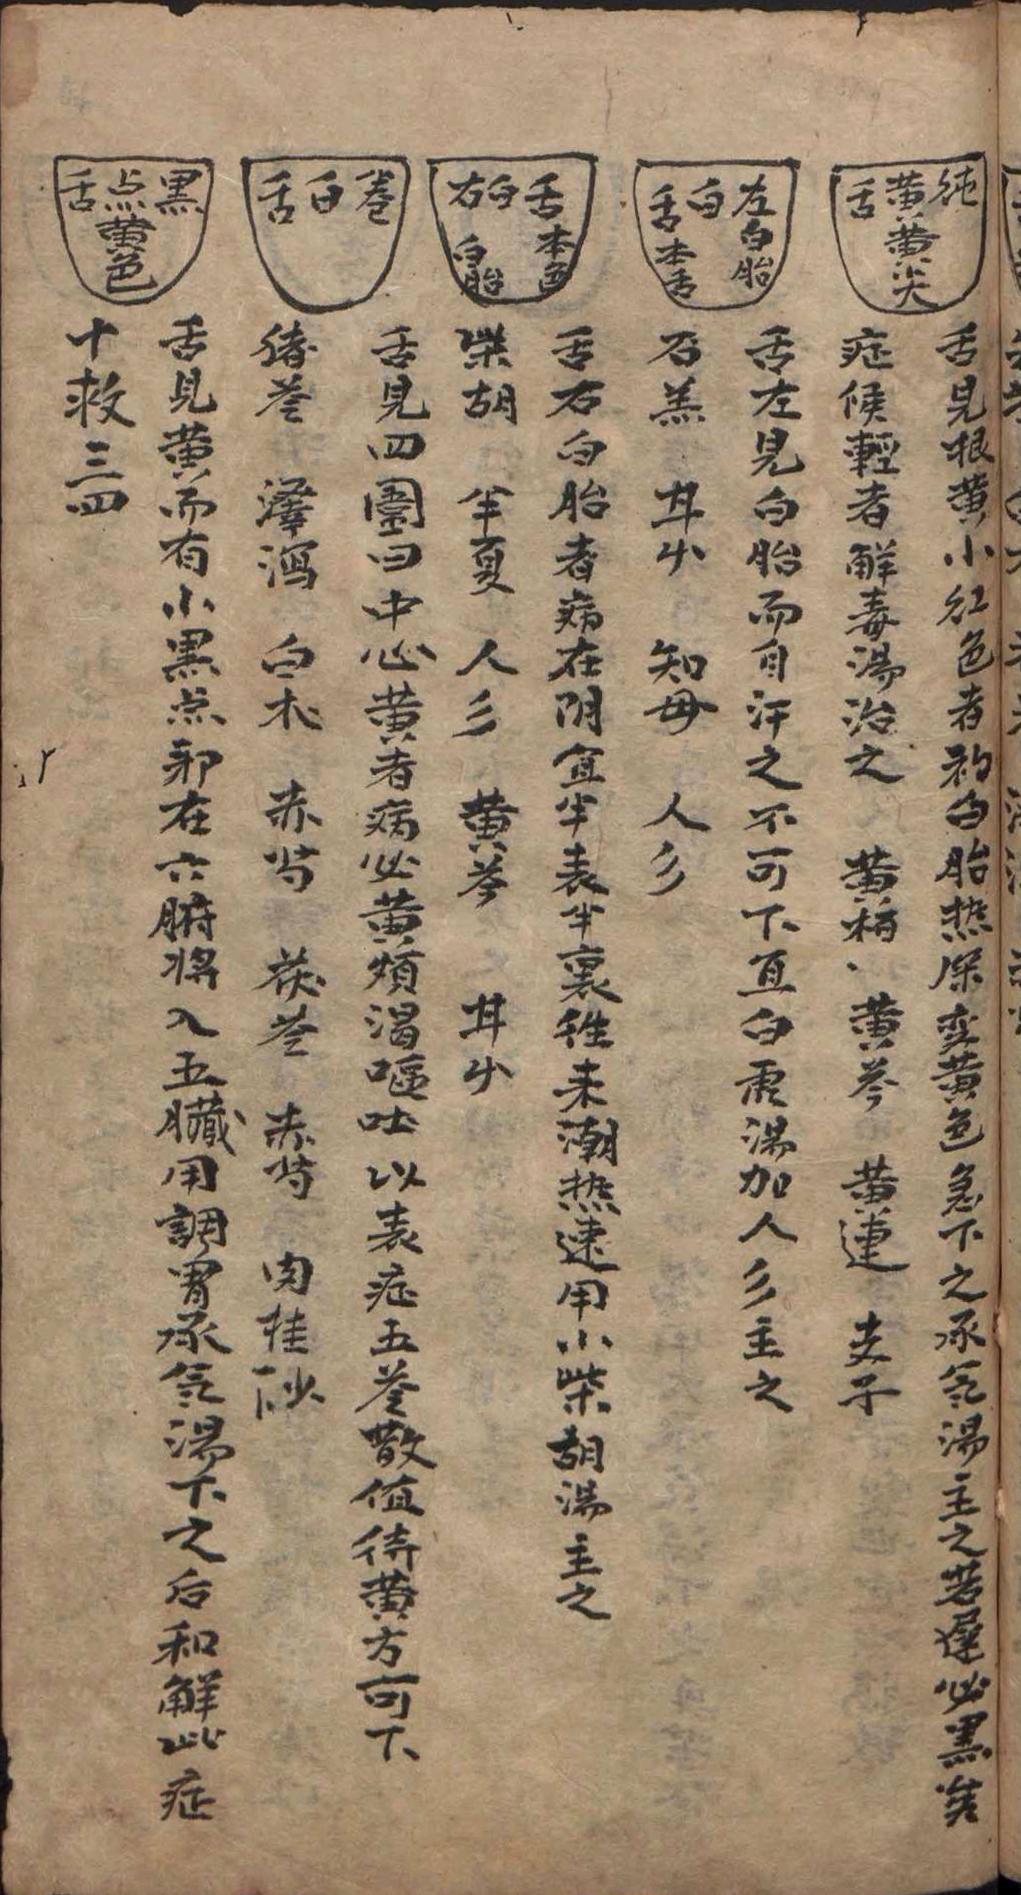 純
黄黄尖
舌
舌見根黄小紅色者初白胎热深变黄色急下之承氣湯主之若遲必黒矣
症候輕者解毒湯治之 黄柏、黄芩 黄連 支子
左白胎
白
舌本舌
舌左見白胎而自汗之不可下宜白虎湯加人彡主之
石羔 甘中 知毋 人彡
舌本色
白
右白胎
舌右白胎者病在阴宜半表半裏徃来潮热速用小柴胡湯主之
柴胡 半夏 人彡 黄芩 甘屮
卷
白
舌
舌見四圍曰中心黄者病必黄煩渴嘔吐以表症五苓散值待黄方可下
猪苓 澤瀉 白朮 赤芍 茯苓 赤芍 肉桂
黒
点黄色
舌
舌見黄而有小黒点邪在六腑将入五臟用調胃承氣湯下之后和解此症
十救三四